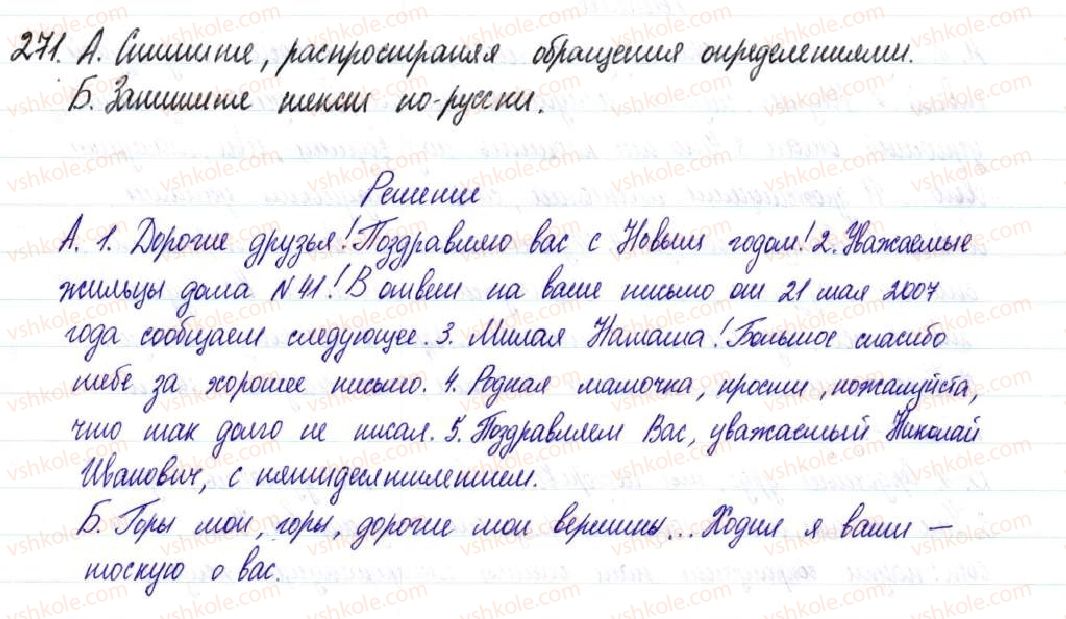 271. А. Спишите, распространяя обращения определениями.
Б. Запишите текст по-русски.
Решение
А. 1. Дорогие друзья! Поздравляю вас с Новым годом! 2. Уважаемые
жильцы дома №41! В ответ на ваше письмо от 21 мая 2007
года сообщаем следующее. 3. Милая Наташа! Большое спасибо
тебе за хорошее письмо. 4. Родная мамочка, прости, пожалуйста,
что так долго не писал. 5. Поздравляем Вас, уважаемый Николай
Иванович, с пятидесятилетием.
Б. Горы мои, горы, дорогие мои вершины... Ходил я ваши —
тоскую о вас.